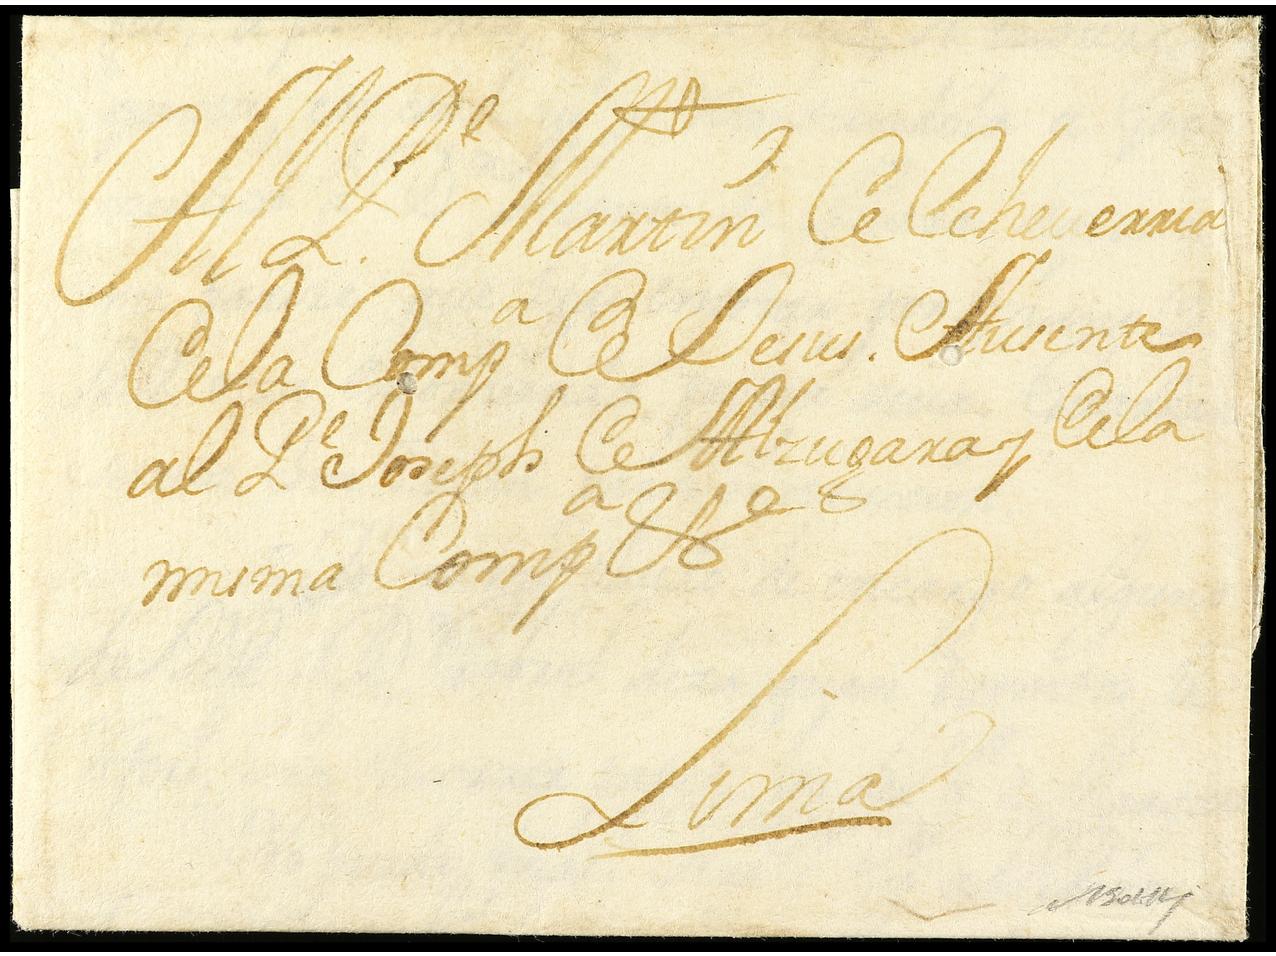 Al P.e Martin de Echeverria
de la Comp.a de Jesus. Ausente
al P.e Joseph de Alzugaray de la
misma Comp.a &.e
Lima